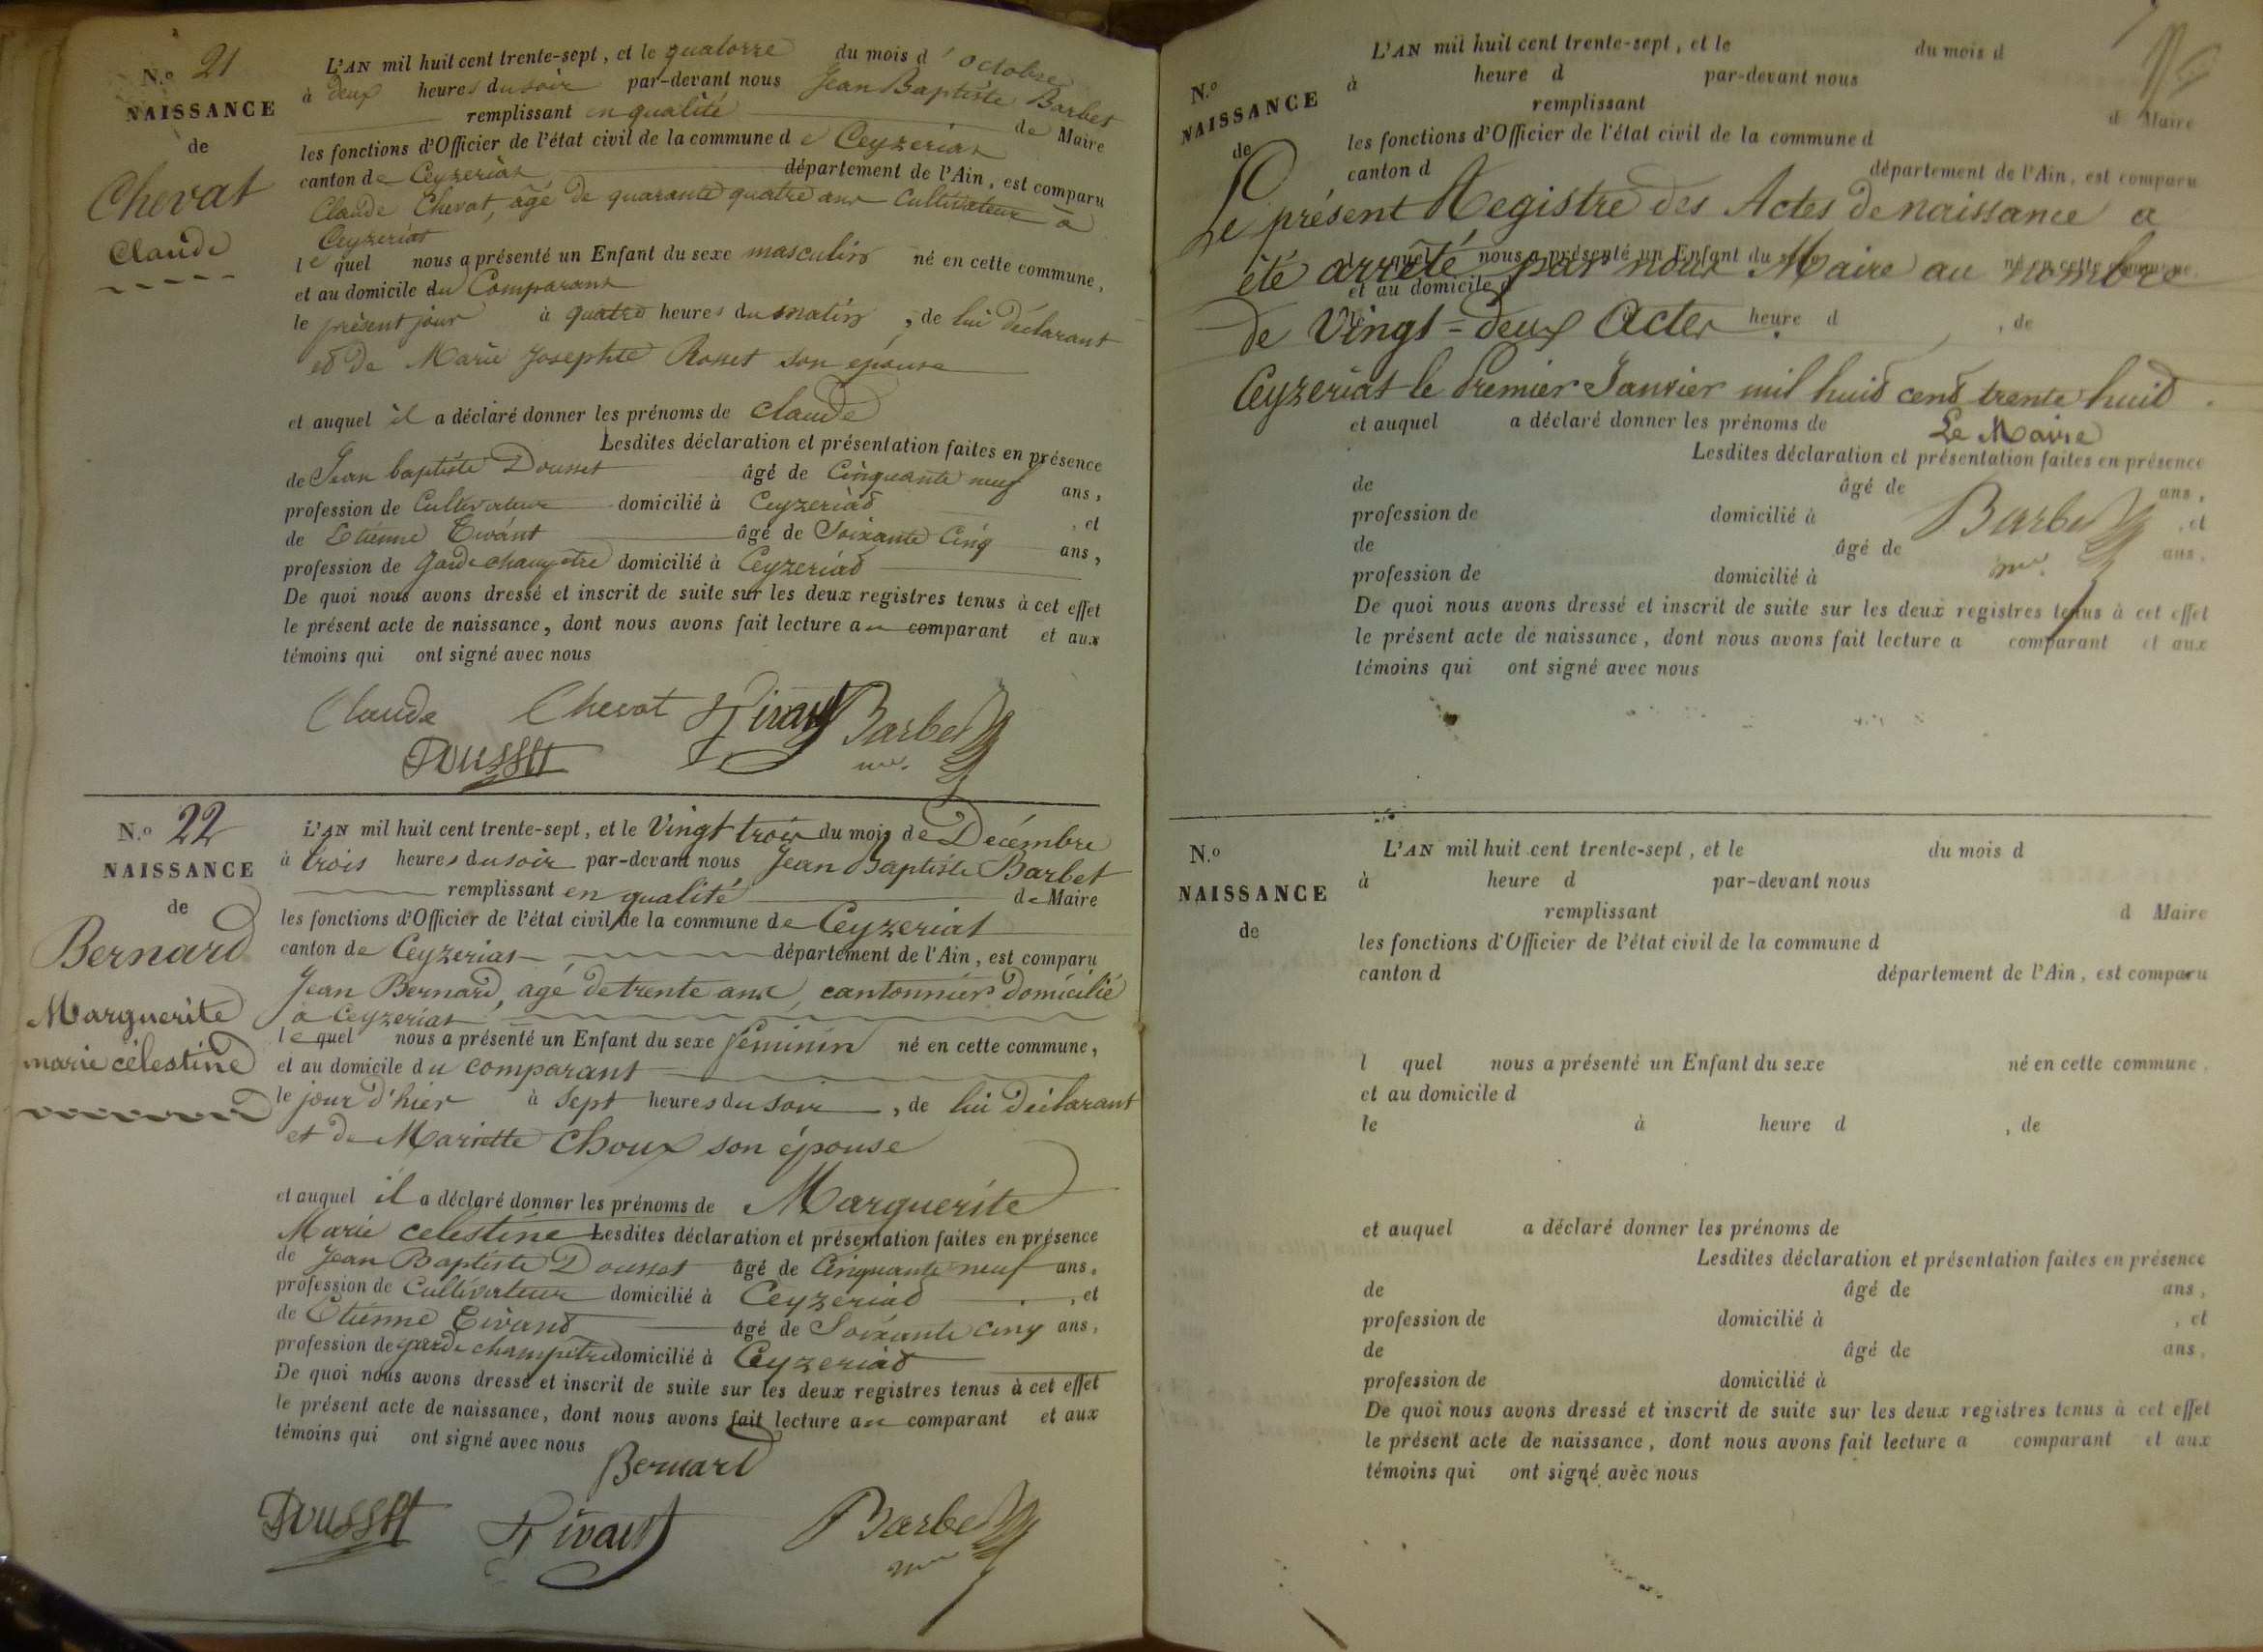 N.o 21
NAISSANCE
de
Chevat
Claude
L'AN mil huit cent trente-sept, et le quatorze du mois d'octobre
à deux heures du soir par-devant nous Jean Baptiste Barbet
remplissant en qualité de Maire
les fonctions d'Officier de l'état civil de la commune de Ceyzeriat
canton de Ceyzeriat département de l'Ain, est comparu
Claude Chevat, âgé de quarante quatre ans Cultivateur à
Ceyzeriat
lequel nous a présenté un Enfant du sexe masculin né en cette commune,
et au domicile du Comparant
le présent jour à quatre heures du matin, de lui déclarant
et de Marie Josephte Rosset son épouse
et auquel il a déclaré donner les prénoms de Claude
Lesdites déclaration et présentation faites en présence
de Jean baptiste Dousset âgé de Cinquante neuf ans,
profession de Cultivateur domicilié à Ceyzeriat, et
de Etienne Tivant âgé de Soixante Cinq ans,
profession de garde champêtre domicilié à Ceyzeriat
De quoi nous avons dressé et inscrit de suite sur les deux registres tenus à cet effet
le présent acte de naissance, dont nous avons fait lecture au comparant et aux
témoins qui ont signé avec nous
Claude Chevat Tivant Barbet
Dousset
N.o 22
NAISSANCE
de
Bernard
Marguerite
marie célestine
L'AN mil huit cent trente-sept, et le Vingt trois du mois de Décembre
à trois heures du soir par-devant nous Jean Baptiste Barbet
remplissant en qualité de Maire
les fonctions d'Officier de l'état civil de la commune de Ceyzeriat
canton de Ceyzeriat département de l'Ain, est comparu
Jean Bernard, agé de trente ans, cantonnier domicilié
à Ceyzeriat
lequel nous a présenté un Enfant du sexe féminin né en cette commune,
et au domicile du comparant
le jour d'hier à sept heures du soir, de lui déclarant
et de Mariette Choux son épouse
et auquel il a déclaré donner les prénoms de Marguerite
Marie celestine Lesdites déclaration et présentation faites en présence
de Jean Baptiste Dousset âgé de Cinquante neuf ans,
profession de Cultivateur domicilié à Ceyzeriat, et
de Etienne Tivant âgé de Soixante cinq ans,
profession de garde champêtre domicilié à Ceyzeriat
De quoi nous avons dressé et inscrit de suite sur les deux registres tenus à cet effet
le présent acte de naissance, dont nous avons fait lecture au comparant et aux
témoins qui ont signé avec nous
Bernard
Dousset Tivant Barbet
N.o
NAISSANCE
de
L'AN mil huit cent trente-sept, et le du mois d
à heure d par-devant nous
remplissant d Maire
les fonctions d'Officier de l'état civil de la commune d
canton d département de l'Ain, est comparu
Le présent Registre des Actes de naissance a
l quel nous a présenté un Enfant du sexe né en cette commune,
été arrêté par nous Maire au nombre
et au domicile d
de Vingt-deux Actes.
le heure d , de
Ceyzeriat le Premier Janvier mil huit cent trente huit.
et auquel a déclaré donner les prénoms de
Le Maire
Lesdites déclaration et présentation faites en présence
de âgé de ans,
profession de domicilié à , et
Barbet
de âgé de ans,
profession de domicilié à
De quoi nous avons dressé et inscrit de suite sur les deux registres tenus à cet effet
le présent acte de naissance, dont nous avons fait lecture a comparant et aux
témoins qui ont signé avec nous
N.o
NAISSANCE
de
L'AN mil huit cent trente-sept, et le du mois d
à heure d par-devant nous
remplissant d Maire
les fonctions d'Officier de l'état civil de la commune d
canton d département de l'Ain, est comparu
l quel nous a présenté un Enfant du sexe né en cette commune,
et au domicile d
le à heure d , de
et auquel a déclaré donner les prénoms de
Lesdites déclaration et présentation faites en présence
de âgé de ans,
profession de domicilié à , et
de âgé de ans,
profession de domicilié à
De quoi nous avons dressé et inscrit de suite sur les deux registres tenus à cet effet
le présent acte de naissance, dont nous avons fait lecture a comparant et aux
témoins qui ont signé avec nous